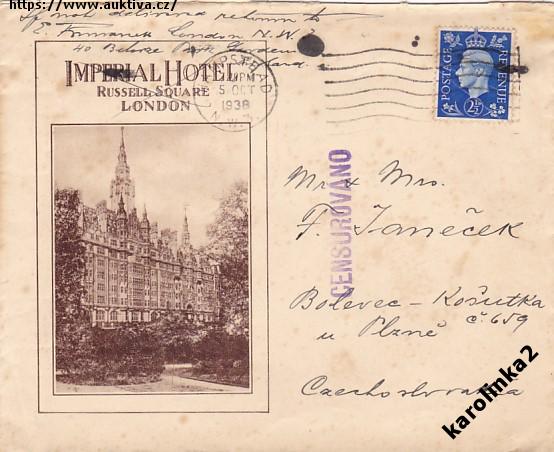 https://www.auktiva.cz/
If not delivered return to
E. Furmanek London N.W.
40 Belsize Park Gardens
IMPERIAL HOTEL
RUSSELL SQUARE
LONDON
HAMPSTEAD
PM
5 OCT
1938
N.W.3.
POSTAGE
REVENUE
2½
CENSUROVÁNO
Mr & Mrs.
F. Janeček
Bolevec – Košutka
č. 659
u Plzně
Czechoslovakia
karolinka2